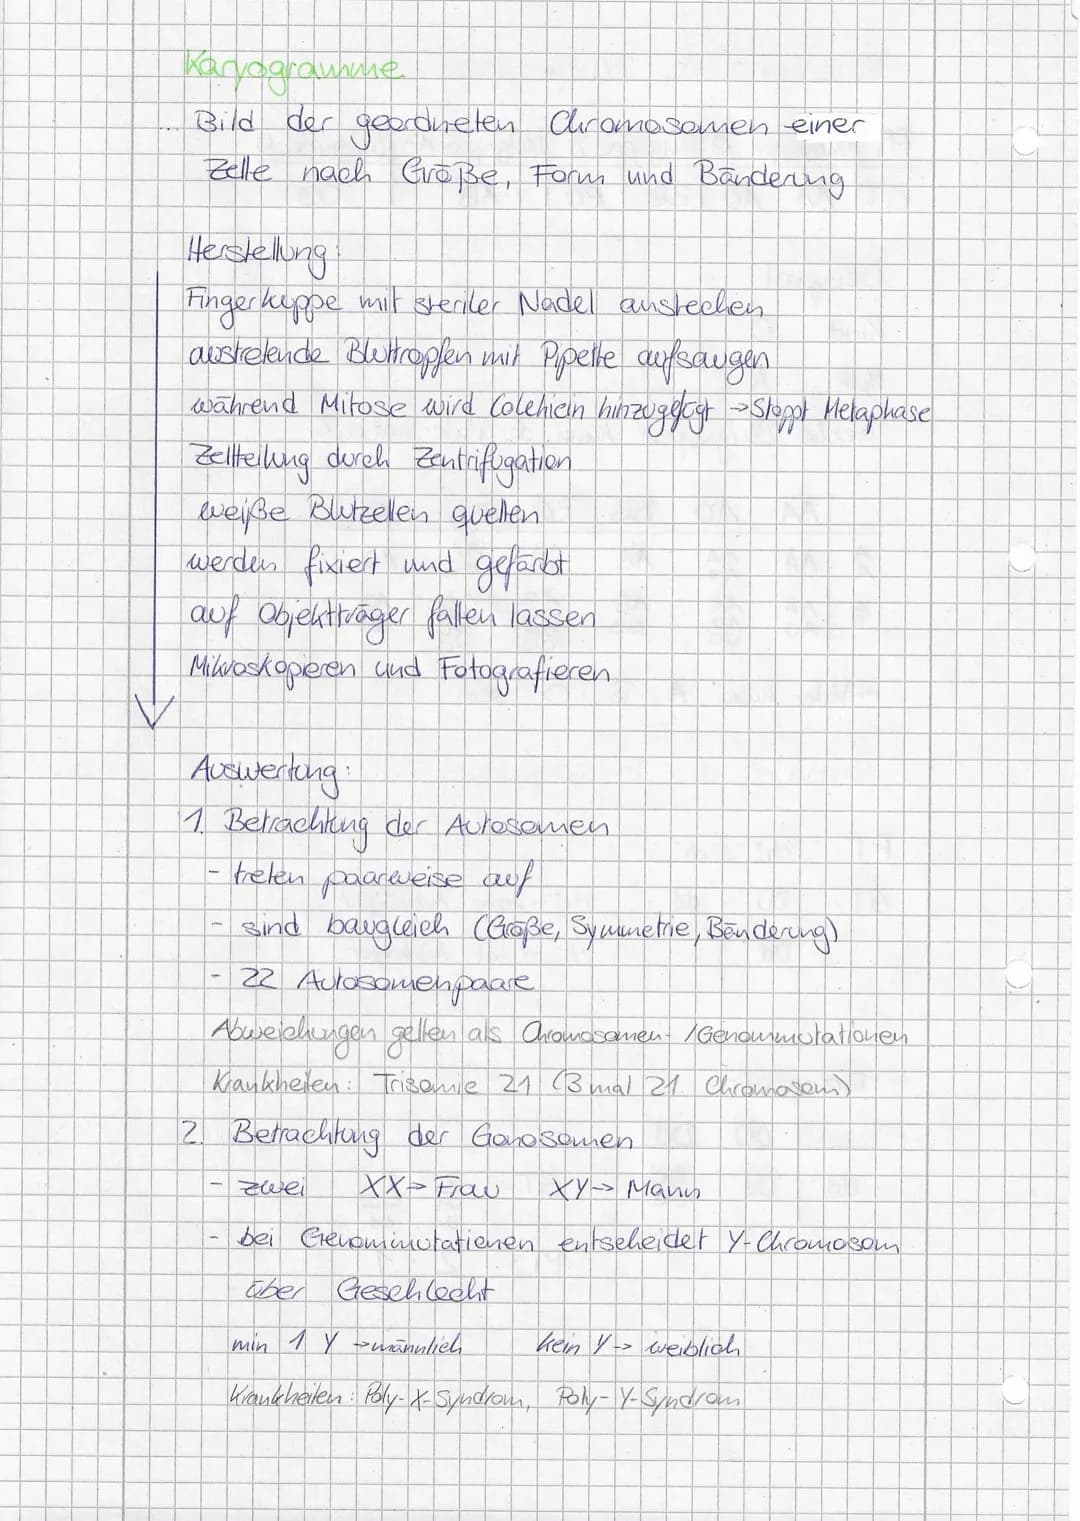 Karyogramme
... Bild der geordneten Chromosomen einer
Zelle nach Größe, Form und Bänderung
Herstellung:
Fingerkuppe mit steriler Nadel anstechen
austretende Bluttropfen mit Pipette aufsaugen
während Mitose wird Colchicin hinzugefügt → Stoppt Metaphase
Zellteilung durch Zentrifugation
weiße Blutzellen quellen
werden fixiert und gefärbt
auf Objektträger fallen lassen
Mikroskopieren und Fotografieren
Auswertung:
1. Betrachtung der Autosomen
- treten paarweise auf
- sind baugleich (Größe, Symmetrie, Bänderung)
- 22 Autosomenpaare
Abweichungen gelten als Chromosomen- /Genommutationen
Krankheiten: Trisomie 21 (3 mal 21. Chromosom)
2. Betrachtung der Gonosomen
- zwei XX → Frau XY → Mann
- bei Genommutationen entscheidet Y-Chromosom
über Geschlecht
min 1 Y → männlich kein Y → weiblich
Krankheiten: Poly-X-Syndrom, Poly-Y-Syndrom